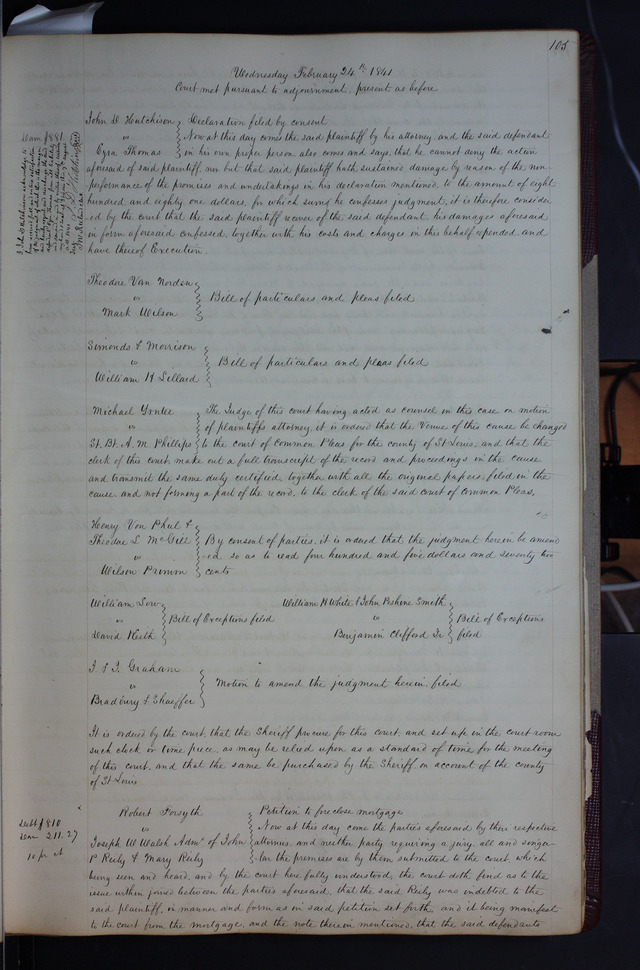 105
Wednesday February 24th 1841
Court met pursuant to adjournment, present as before
John D Hutchison
vs
Ezra Thomas
Declaration filed by consent
Now at this day comes the said plaintiff by his attorney, and the said defendant
in his own proper person also comes and says that he cannot deny the action
aforesaid of said plaintiff, nor but that said plaintiff hath sustained damage by reason of the non-
performance of the promises and undertakings in his declaration mentioned, to the amount of eight
hundred and eighty one dollars, for which sum he confesses judgment, it is therefore consider-
ed by the court that the said plaintiff recover of the said defendant, his damages aforesaid
in form aforesaid confessed, together with his costs and charges in this behalf expended and
have thereof Execution.
Dam $881.
I John D Hutchison acknowledge to
Theodore Van Norden
vs
Mark Wilson
Bill of particulars and pleas filed
Simonds & Morrison
vs
William H Lillard
Bill of particulars and pleas filed
Michael
vs
St. Bt. A. M. Phillips
The Judge of this court having acted as counsel in this case on motion
of plaintiffs attorney, it is ordered that the Venue of this cause be changed
to the court of Common Pleas for the county of St Louis; and that the
clerk of this court, make out a full transcript of the record and proceedings in the cause
and transmit the same duly certified together with all the original papers filed in the
cause and not forming a part of the record, to the clerk of the said court of common Pleas.
Henry Von Phul &
Theodore L McGill
vs
Wilson Primm
By consent of parties, it is ordered that the judgment herein be amend
ed so as to read four hundred and five dollars and seventy two
cents
William Low
vs
David Keith
Bill of Exceptions filed
William H White & John Perkine Smith
vs
Benjamin Clifford Jr
Bill of Exceptions
filed
J & J. Graham
vs
Bradbury & Shaeffer
Motion to amend the judgment herein filed
It is ordered by the court, that the Sheriff procure for this court, and set up in the court room
such clock or time piece, as may be relied upon as a standard of time for the meeting
of this court, and that the same be purchased by the Sheriff on account of the county
of St Louis
Debt $810
Dam 211.27
10 pr ct
Robert Forsyth
vs
Joseph W Walsh Admr. of John
P Reily & Mary Reily
Petition to foreclose mortgage
Now at this day come the parties aforesaid by their respective
attornies, and neither party requiring a jury, all and singu-
lar the premises are by them submitted to the court, which
being seen and heard, and by the court here fully understood, the court doth find as to the
issue within joined between the parties aforesaid, that the said Reily was indebted to the
said plaintiff, in manner and form as in said petition set forth, and it being manifest
to the court from the mortgage, and the note therein mentioned, that the said defendants